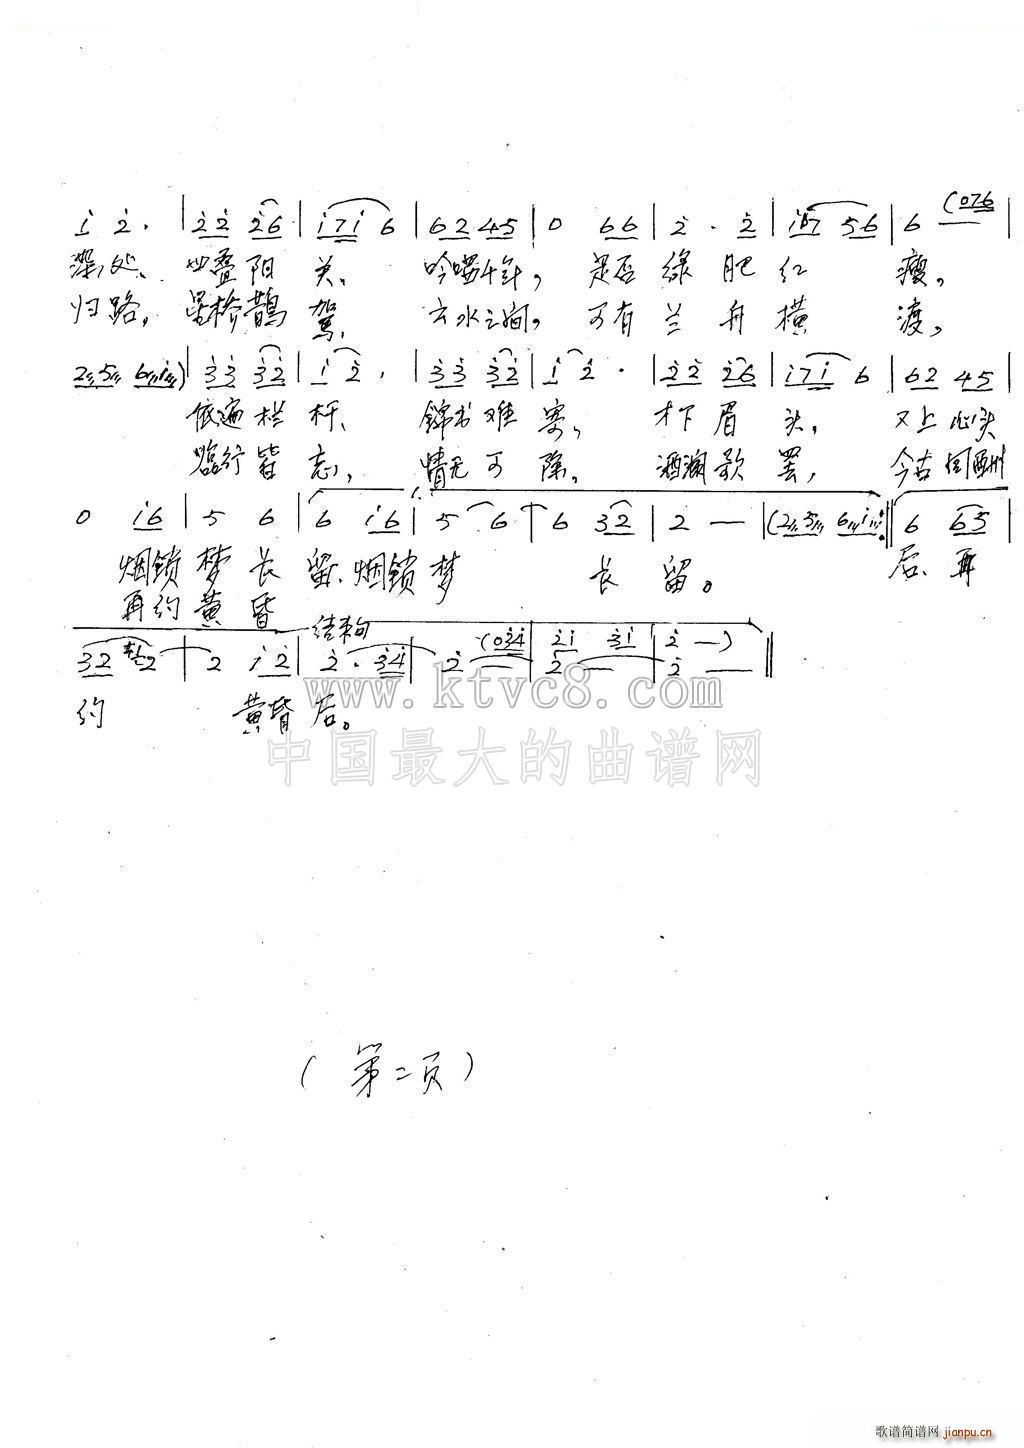 i 2· | 22 26 | i7i 6 | 62 45 | 0 66 | 2· 2 | i67 56 | 6 (076 |
深处、四叠阳关、吟哦千年，是否绿肥红瘦。
归路，星桥鹊驾，云水之间，可有兰舟横渡，
25 6i) | 33 32 | i 2· | 33 32 | i 2· | 22 26 | i7i 6 | 62 45 |
依遍栏杆、锦书难寄，才下眉头，又上心头
临行皆忘，情无可除。酒阑歌罢，今古同酬
0 i6 | 5 6 | 6 i6 | 5 6 | 6 32 | 2 — | (25 6i :‖ 6 65 |
烟锁梦长留、烟锁梦长留。后、再
再约黄昏
结束句
32 2 | 2 i2 | 2· 34 | 2 — (034 | 2i 3i | 2 —) ‖
2 — 2 —
约 黄昏后。
www.ktvc8.com
中国最大的曲谱网
（第二页）
歌谱简谱网 jianpu.cn